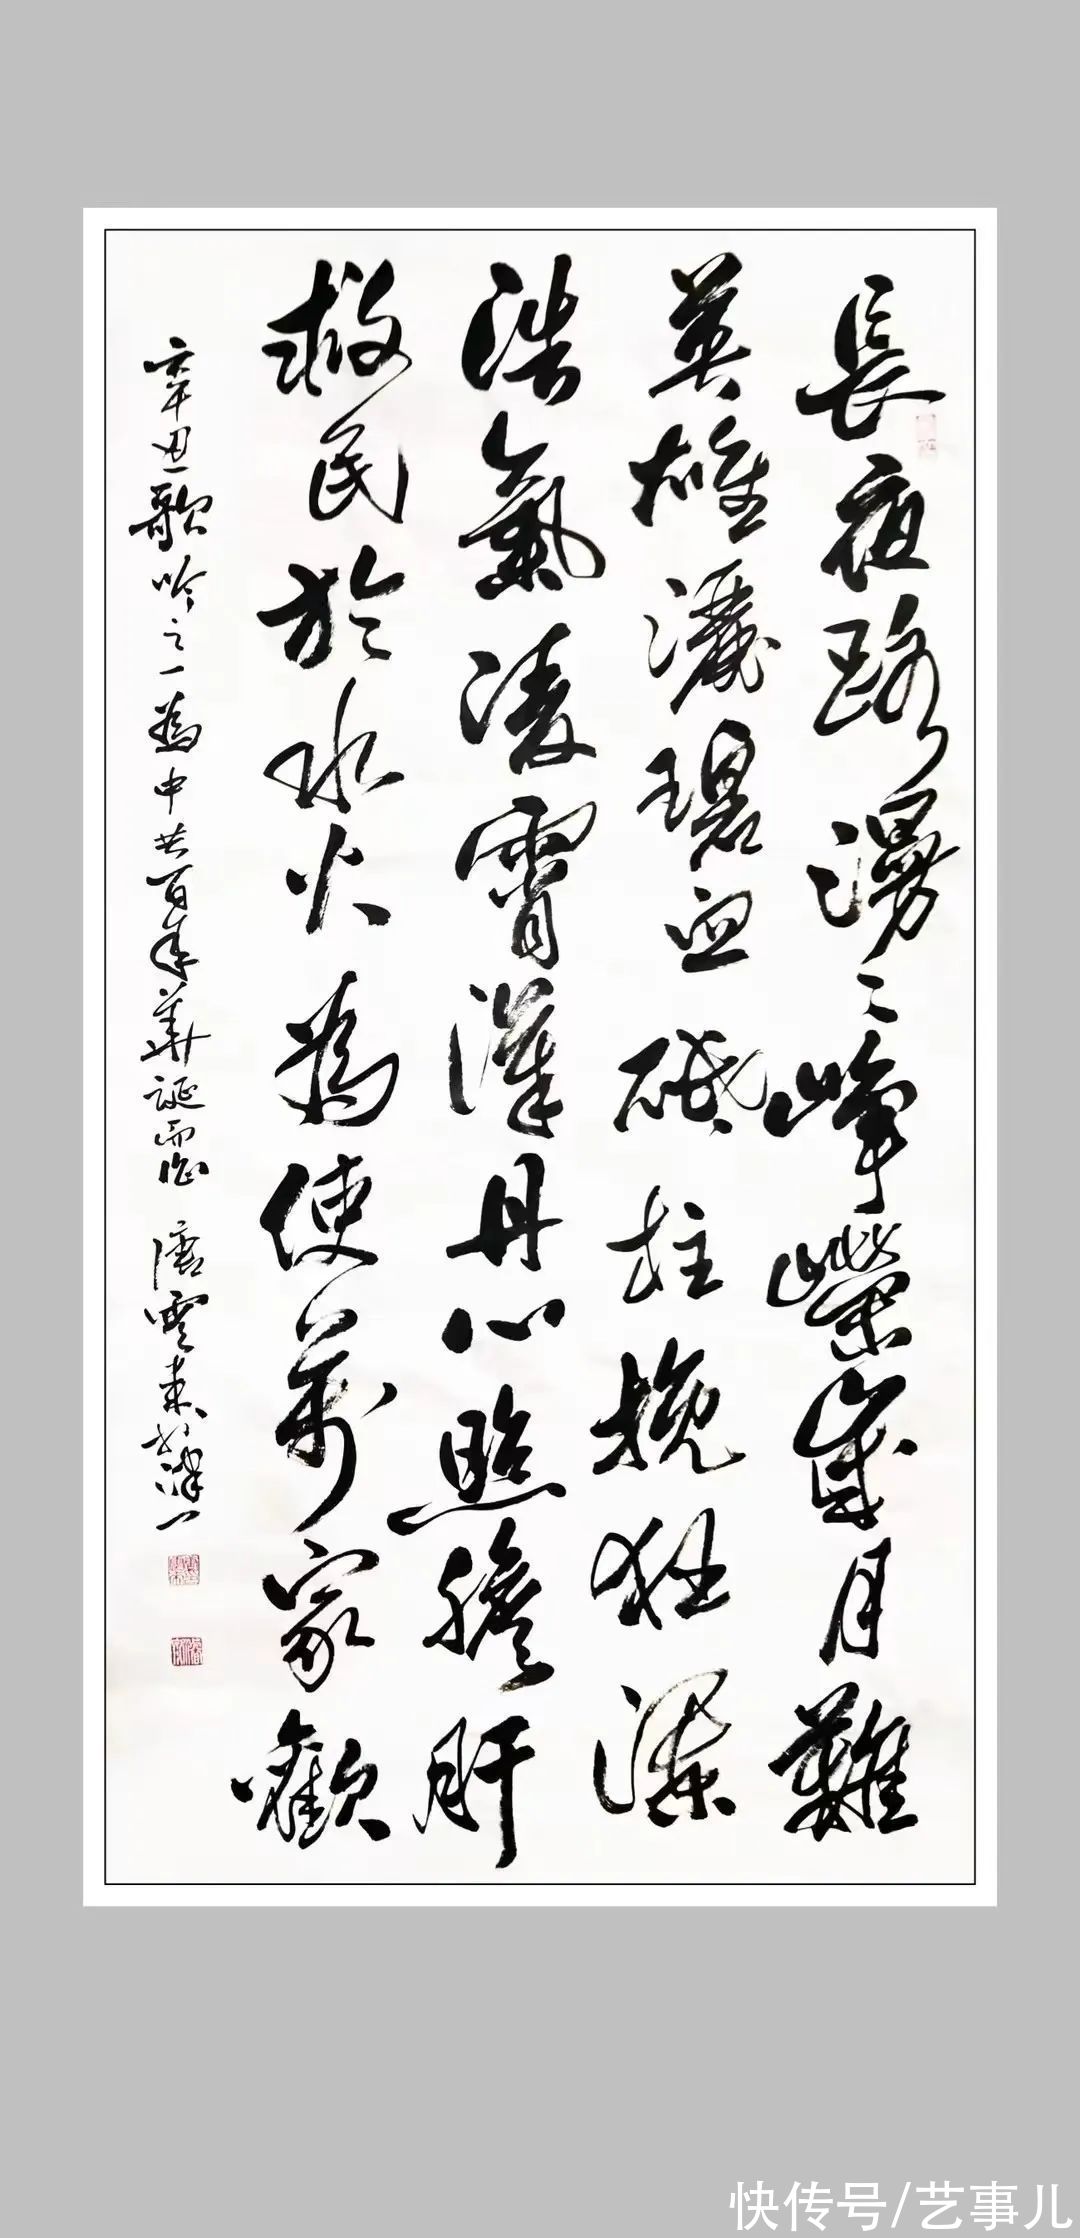 長夜路漫〻崢嶸歲月難
英雄灑碧血砥柱挽狂瀾
浩氣凌霄漢丹心照膽肝
救民於水火為使萬家歡
辛丑歌吟之一為中共百年華誕而作 唐雲來於津一
快传号/艺事儿